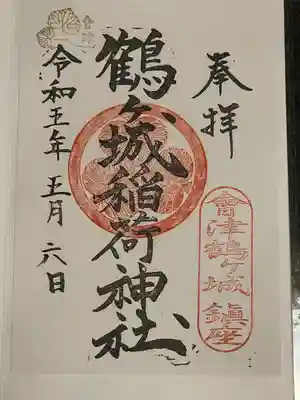 奉拝
會津鶴ヶ城鎮座
鶴ヶ城稲荷神社
令和五年五月六日
會津